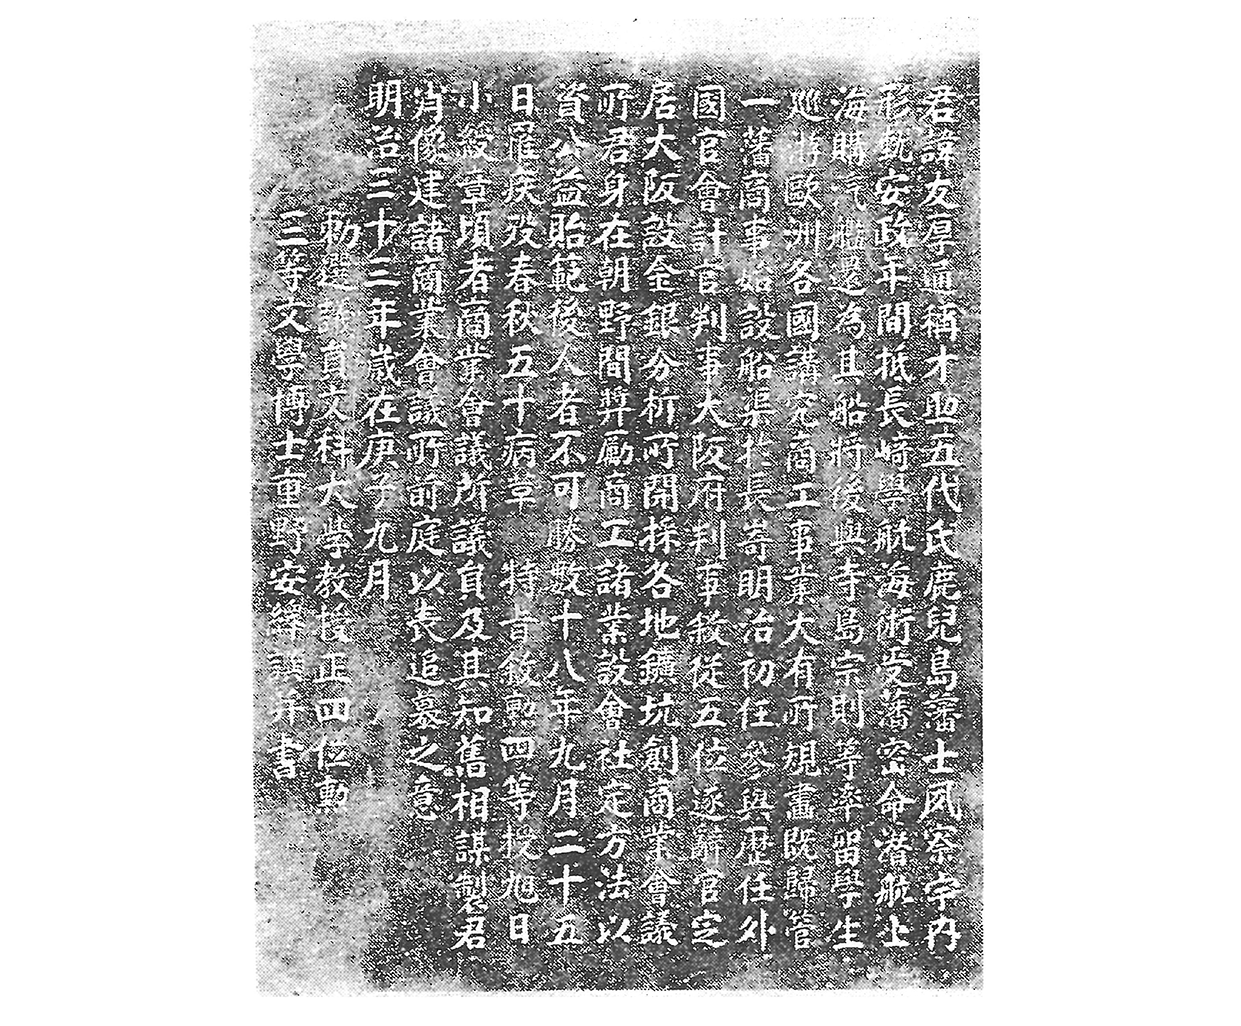 君諱友厚通稱才助五代氏鹿兒島藩士夙察宇內
形勢安政年間抵長崎學航海術受藩密命潛航上
海購汽艦還為其船將後與寺島宗則等率留學生
巡游歐洲各國講究商工事業大有所規畫既歸管
一藩商事始設船渠於長崎明治初任參與歷任外
國官會計官判事大阪府判事敍從五位逐辭官定
居大阪設金銀分析所開採各地鑛坑創商業會議
所君身在朝野間奬勵商工諸業設會社定方法以
資公益貽範後人者不可勝數十八年九月二十五
日罹疾歿春秋五十病革 特旨敍勳四等授旭日
小綬章頃者商業會議所議員及其知舊相謀製君
肖像建諸商業會議所前庭以表追慕之意
明治三十三年歲在庚子九月
勅選議員文科大學教授正四位勳
三等文學博士重野安繹撰并書